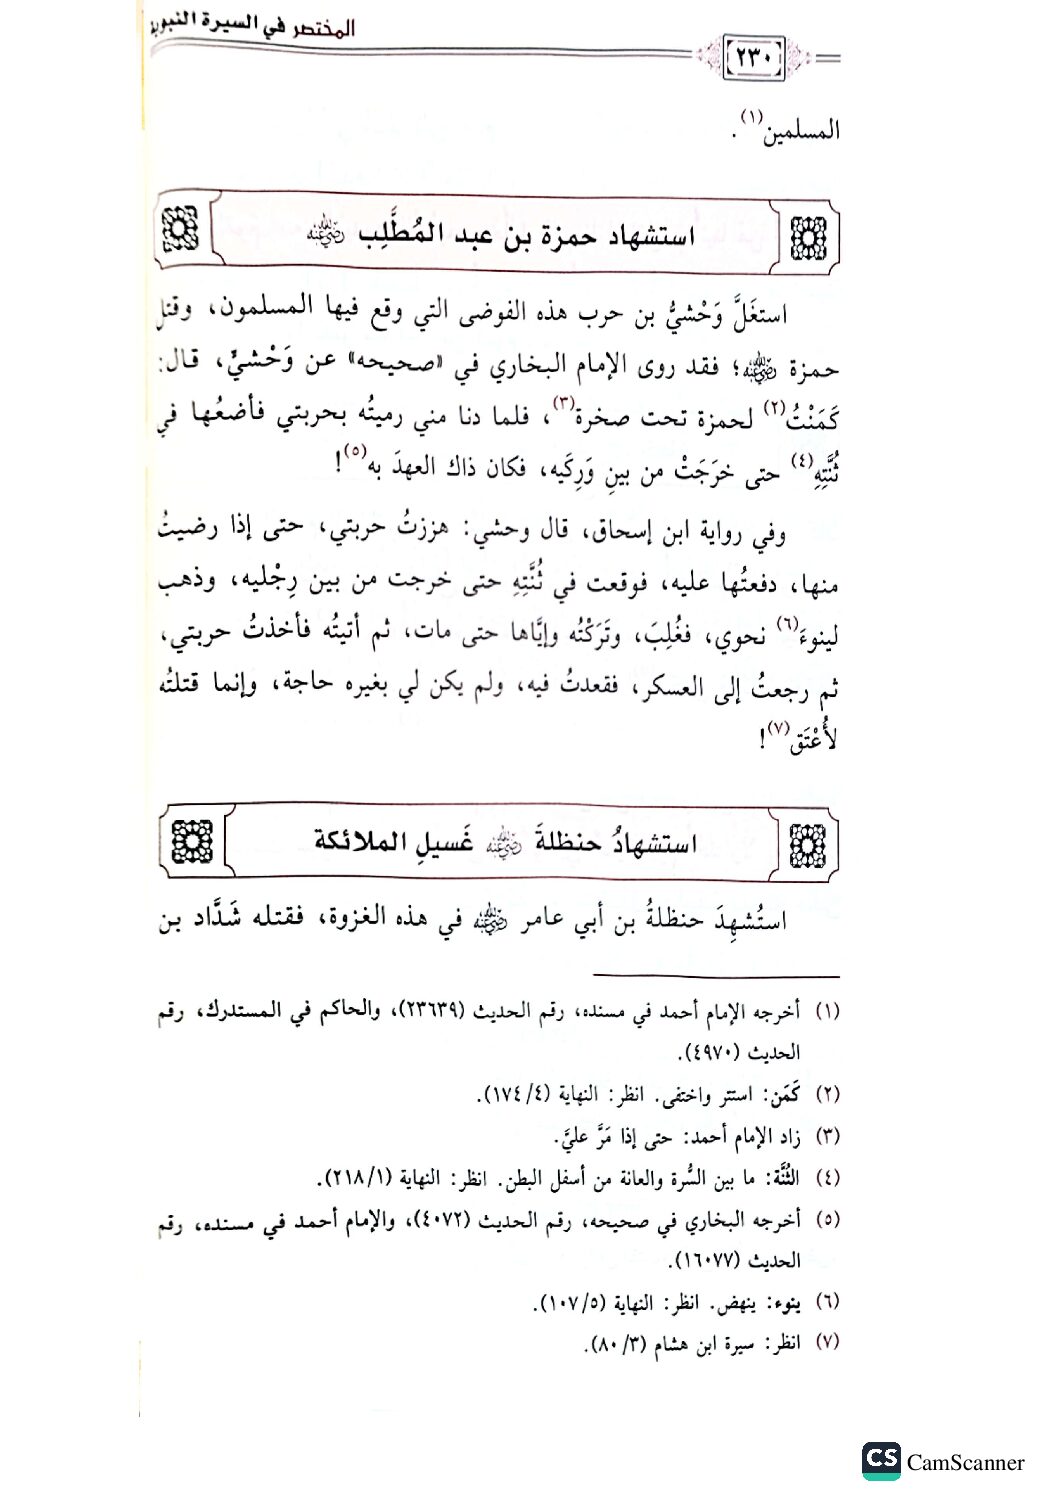 المختصر في السيرة النبوية
٢٣٠
المسلمين(١).
استشهاد حمزة بن عبد المُطَّلِب ﷺ
استغَلَّ وَحْشيُّ بن حرب هذه الفوضى التي وقع فيها المسلمون، وقتل
حمزة رضي الله عنه؛ فقد روى الإمام البخاري في «صحيحه» عن وَحْشيٍّ، قال:
كَمَنْتُ(٢) لحمزة تحت صخرة(٣)، فلما دنا مني رميتُه بحربتي فأضعُها في
ثُنَّتِهِ(٤) حتى خرَجَتْ من بينِ وَرِكَيه، فكان ذاك العهدَ به(٥)!
وفي رواية ابن إسحاق، قال وحشي: هززتُ حربتي، حتى إذا رضيتُ
منها، دفعتُها عليه، فوقعت في ثُنَّتِهِ حتى خرجت من بين رِجْليه، وذهب
لينوءَ(٦) نحوي، فغُلِبَ، وتَرَكْتُه وإيَّاها حتى مات، ثم أتيتُه فأخذتُ حربتي،
ثم رجعتُ إلى العسكر، فقعدتُ فيه، ولم يكن لي بغيره حاجة، وإنما قتلتُه
لأُعْتَق(٧)!
استشهادُ حنظلةَ رضي الله عنه غَسيلِ الملائكة
استُشهِدَ حنظلةُ بن أبي عامر رضي الله عنه في هذه الغزوة، فقتله شَدَّاد بن
(١) أخرجه الإمام أحمد في مسنده، رقم الحديث (٢٣٦٣٩)، والحاكم في المستدرك، رقم
الحديث (٤٩٧٠).
(٢) كَمَن: استتر واختفى. انظر: النهاية (١٧٤/٤).
(٣) زاد الإمام أحمد: حتى إذا مَرَّ عليَّ.
(٤) الثُنَّة: ما بين السُّرة والعانة من أسفل البطن. انظر: النهاية (٢١٨/١).
(٥) أخرجه البخاري في صحيحه، رقم الحديث (٤٠٧٢)، والإمام أحمد في مسنده، رقم
الحديث (١٦٠٧٧).
(٦) ينوء: ينهض. انظر: النهاية (١٠٧/٥).
(٧) انظر: سيرة ابن هشام (٨٠/٣).
CS CamScanner